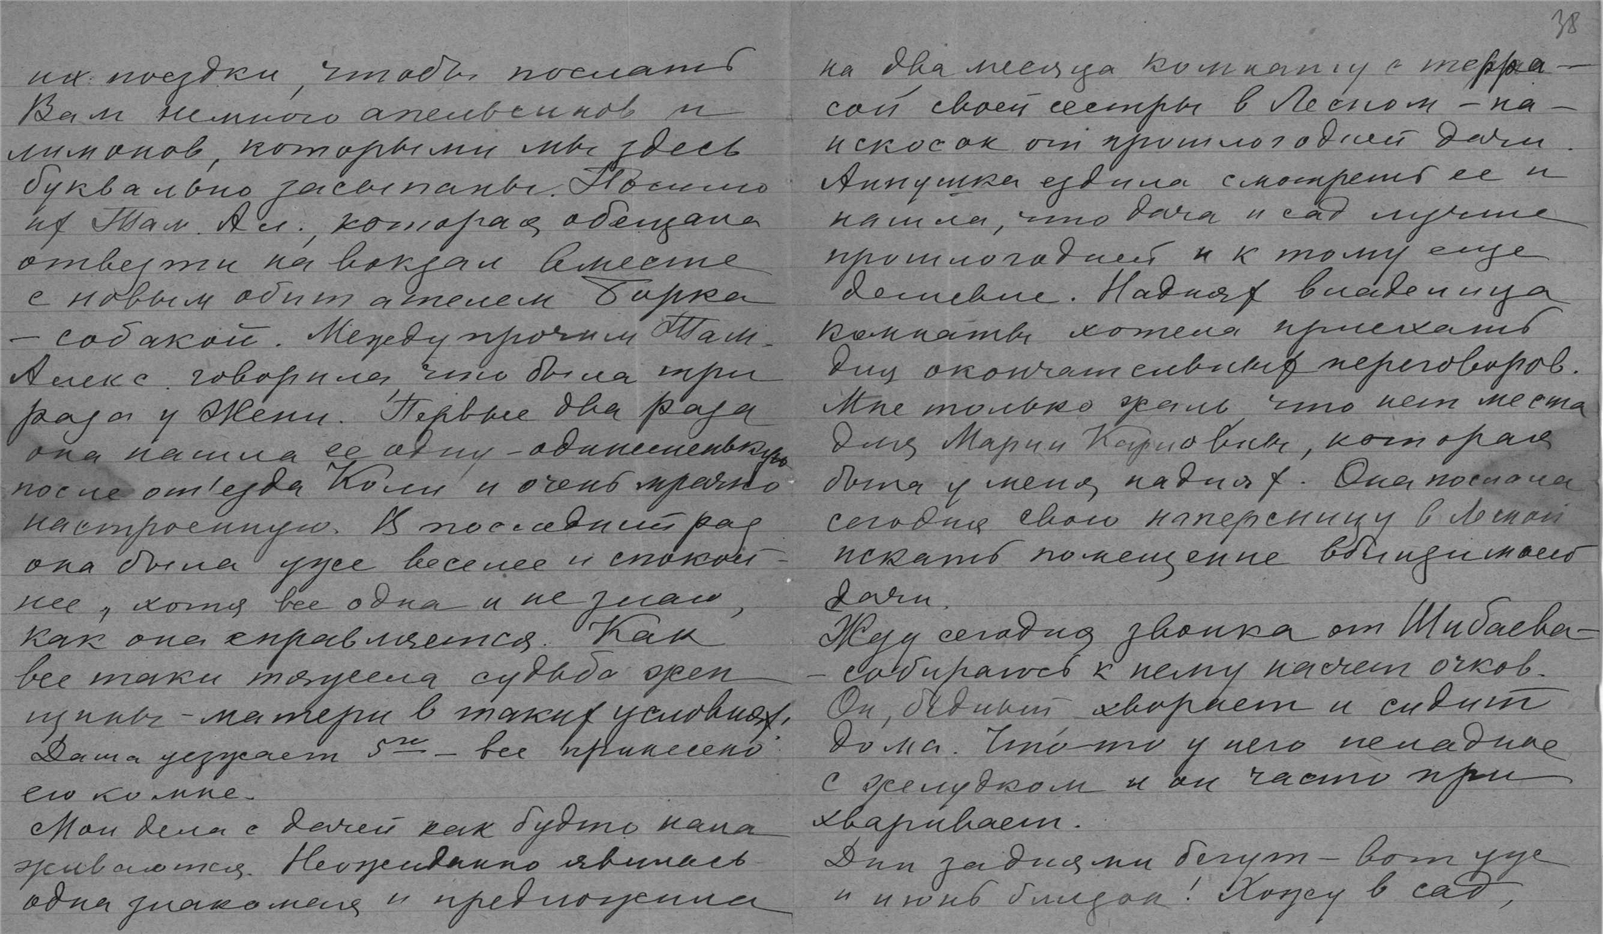 их поездки, чтобы послать
Вам немного апельсинов и
лимонов, которыми мы здесь
буквально засыпаны. Посылаю
их Там. Ал., которая обещала
отвезти на вокзал вместе
с новым обитателем Борка
– собакой. Между прочим Там.
Алекс. говорила, что была три
раза у Жени. Первые два раза
она нашла ее одну-одинешенькую
после от'езда Коли и очень мрачно
настроенную. В последний раз
она была уже веселее и спокой-
нее, хотя все одна и не знаю,
как она справляется. Как
все таки тяжела судьба жен
щины-матери в таких условиях.
Даша уезжает 5го – все принесено
ею ко мне.
Мои дела с дачей как будто нала
живаются. Неожиданно явилась
одна знакомая и предложила
38
на два месяца комнату с терра-
сой своей сестры в Лесном – на-
искосок от прошлогодней дачи.
Аннушка ездила смотреть ее и
нашла, что дача и сад лучше
прошлогодней и к тому еще
дешевле. На днях владелица
комнаты хотела приехать
для окончательных переговоров.
Мне только жаль, что нет места
для Марии Карловны, которая
была у меня на днях. Она послала
сегодня свою наперсницу в Лесной
искать помещение вблизи моей
дачи.
Жду сегодня звонка от Шибаева –
– собираюсь к нему насчет очков.
Он, бедный хворает и сидит
дома. Что-то у него неладное
с желудком и он часто при
хварывает.
Дни за днями бегут – вот уже
и июнь близок! Хожу в сад,